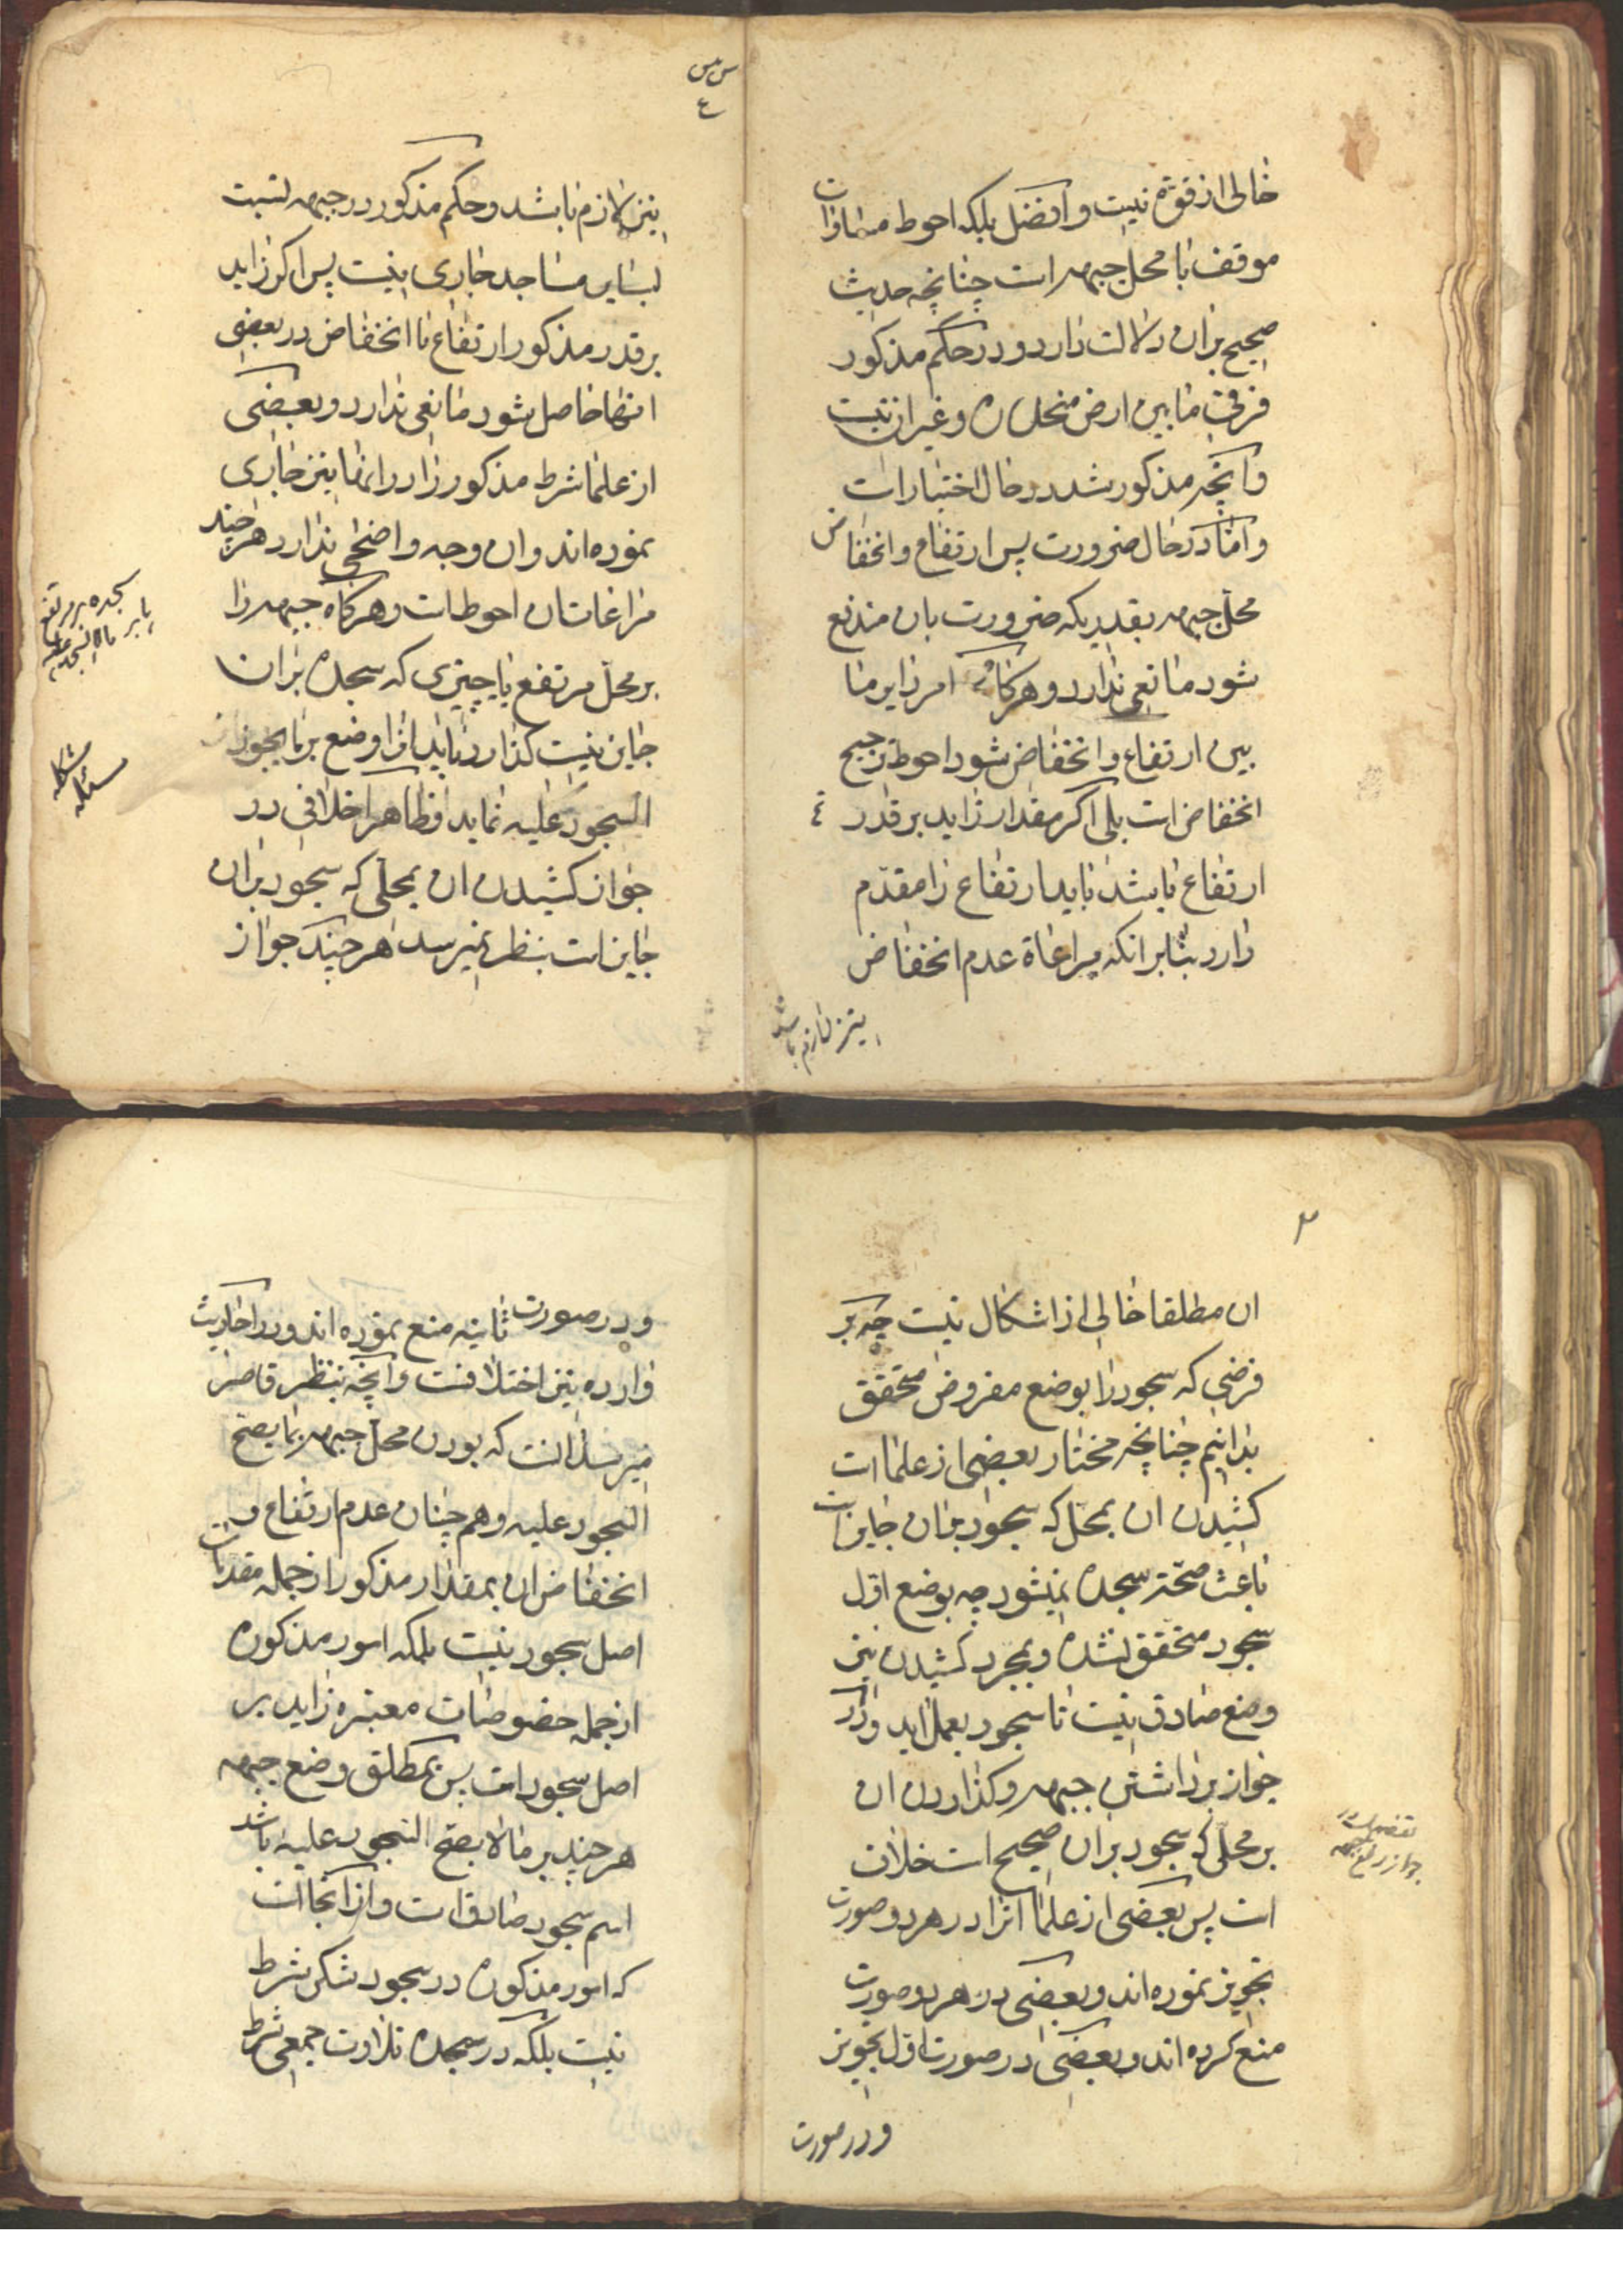 خالی از قوة نیست و افضل بلکه احوط مساوات
موقف با محل جبهه است چنانچه حدیث
صحیح بران دلالت دارد و در حکم مذکور
فرقی ما بین ارض منحدره و غیر ان نیست
و آنچه مذکور شد در حال اختیار است
و امّا در حال ضرورت پس ارتفاع و انخفاض
محلّ جبهه بقدریکه ضرورت بان مندفع
شود مانعی ندارد و هرگاه امر دایر ما
بین ارتفاع و انخفاض شود احوط ترجیح
انخفاض است بلی اگر مقدار زاید بر قدر
ارتفاع باشد باید ارتفاع را مقدّم
دارد بنابر انکه مراعاة عدم انخفاض
نیز لازم باشد
س س
ع
نیز لازم باشد و حکم مذکور در جبهه نسبت
بسایر مساجد جاری نیست پس اگر زاید
بر قدر مذکور ارتفاع یا انخفاض در بعضی
انها حاصل شود مانعی ندارد و بعضی
از علما شرط مذکور را در انها نیز جاری
نموده اند و ان وجه واضحی ندارد هر چند
مراعات ان احوط است و هرگاه جبهه را
بر محلّ مرتفع یا چیزی که سجده بران
جایز نیست گذارد نباید انرا وضع بر ما یجوز
السجود علیه نماید و ظاهرا خلافی در
جواز کشیدن ان بمحلّی که سجود بران
جایز است بنظر نمیرسد هر چند جواز
سجده بر مرتفع
مسئله مشکله
۳
ان مطلقا خالی از اشکال نیست چه بر
فرضی که سجود را بوضع مفروض متحقق
بدانیم چنانچه مختار بعضی از علما است
کشیدن ان بمحل که سجود بران جایز است
باعث صحّت سجده نمیشود چه بوضع اوّل
سجود متحقق نشده و بمجرد کشیدن نیز
وضع صادق نیست تا سجود بعمل اید و در
جواز برداشتن جبهه و گذاردن ان
بر محلّی که سجود بران صحیح است خلاف
است پس بعضی از علما انرا در هر دو صورت
تجویز نموده اند و بعضی در هر دو صورت
منع کرده اند و بعضی در صورت اوّل تجویز
جواز رفع جبهه
و در صورت
و در صورت ثانیه منع نموده اند و در احادیث
وارده نیز اختلافست و آنچه بنظر قاصر
میرسد انست که بودن محلّ جبهه مما یصحّ
السجود علیه و هم چنان عدم ارتفاع و
انخفاض ان بمقدار مذکور از جمله مقدمات
اصل سجود نیست بلکه امور مذکوره
از جمله خصوصیات معتبره زاید بر
اصل سجود است پس بمطلق وضع جبهه
هر چند بر ما لا یصحّ السجود علیه باشد
اسم سجود صادق است و از انجا است
که امور مذکوره در سجود شکر شرط
نیست بلکه در سجده تلاوت جمعی شرط